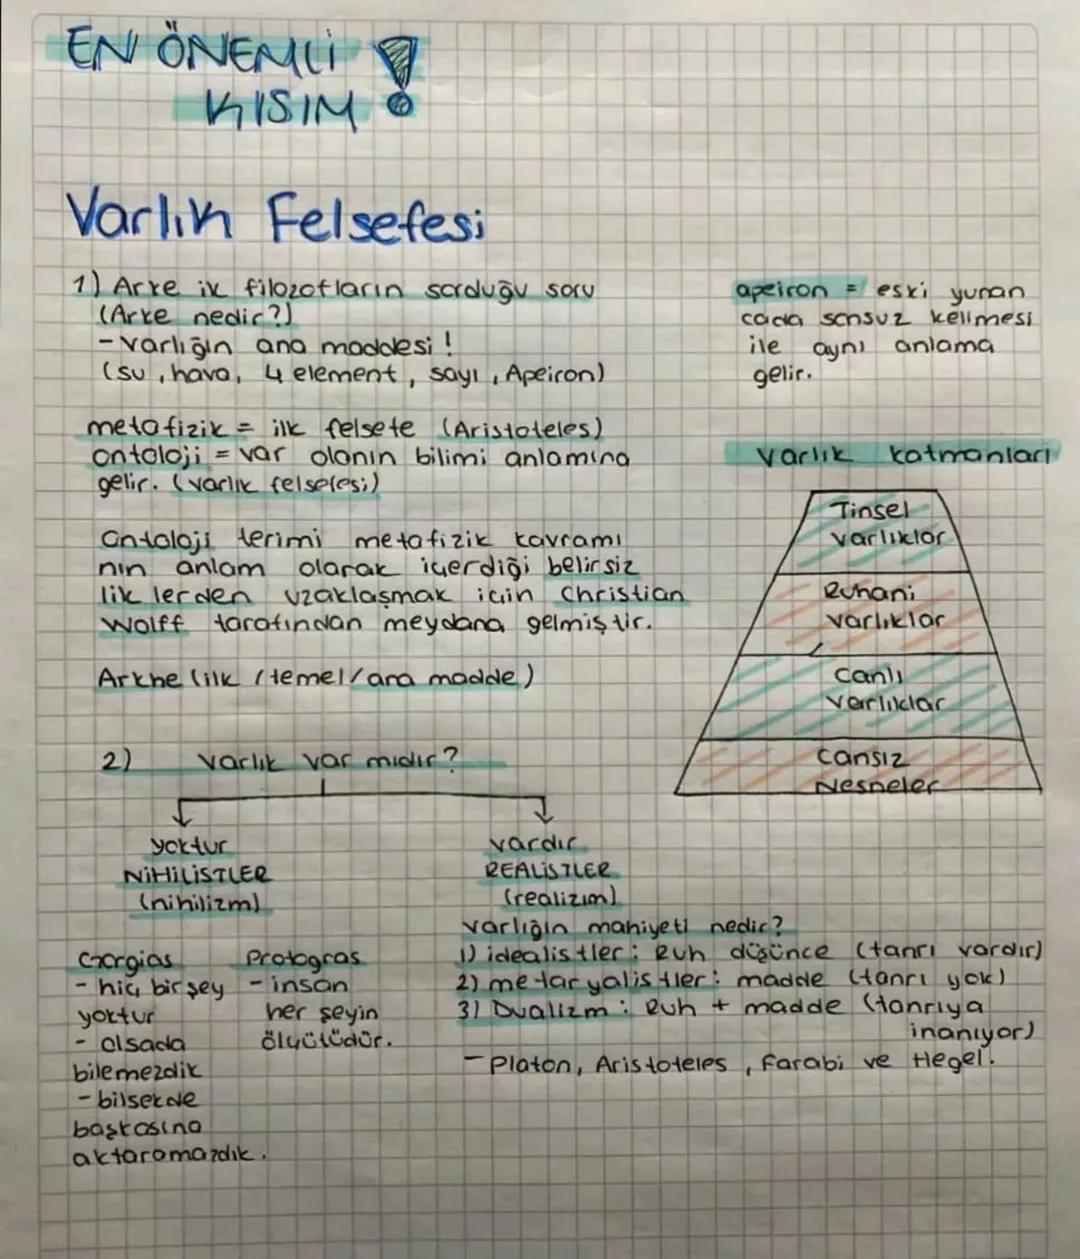 EN ÖNEMLİ
KISIM !
Varlık Felsefesi
1) Arke ik filozofların sorduğu soru
(Arke nedir?)
- varlığın ana maddesi !
(su, hava, 4 element, sayı, Apeiron)
apeiron = eski yunan
cada sonsuz kelimesi
ile aynı anlama
gelir.
metafizik = ilk felsefe (Aristoteles)
ontoloji = var olanın bilimi anlamına
gelir. (varlık felsefesi)
Ontoloji terimi metafizik kavramı
nın anlam olarak içerdiği belirsiz
lik lerden uzaklaşmak için Christian
Wolff tarafından meydana gelmiştir.
Arkhe (ilk / temel/ana madde)
varlık katmanları
Tinsel
varlıklar
Ruhani
varlıklar
Canlı
varlıklar
Cansız
Nesneler
2) Varlık var mıdır?
yoktur
NİHİLİSTLER
(nihilizm)
vardır
REALİSTLER
(realizım)
Gorgias
- hiç birşey
yoktur
- olsada
bilemezdik
- bilsekde
başkasına
aktaramazdık.
Protogras
- insan
her şeyin
ölçütüdür.
varlığın mahiyeti nedir?
1) idealistler : Ruh düşünce (tanrı vardır)
2) metaryalistler : madde (tanrı yok)
3) Dualizm : Ruh + madde (tanrıya
inanıyor)
- Platon, Aristoteles, Farabi ve Hegel.